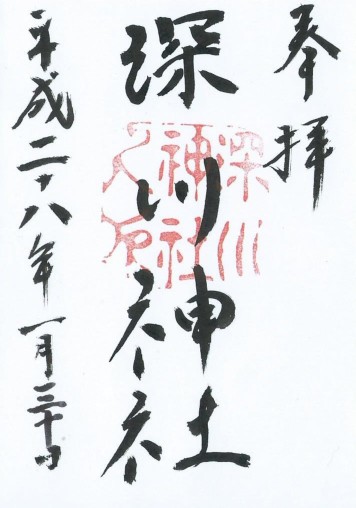 奉拝
深川神社
深川
神社
之印
平成二十八年一月三十日